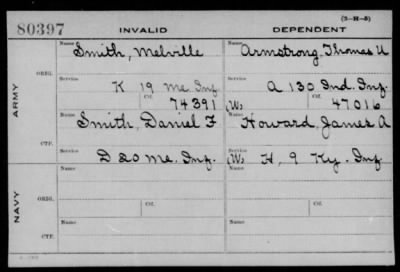 (3-H-5)
80397 INVALID DEPENDENT
Name Smith, Melville Name Armstrong, Thomas U
ORIG.
Service K 19 Me. Inf. Service A 130 Ind. Inf.
ARMY
Ctf. 74391 (W) Ctf. 47016
Name Smith, Daniel F Name Howard, James A
CTF.
Service D 20 Me. Inf. Service (W) H, 9 Ky. Inf.
Name Name
ORIG.
NAVY
Ctf. Ctf.
Name Name
CTF.